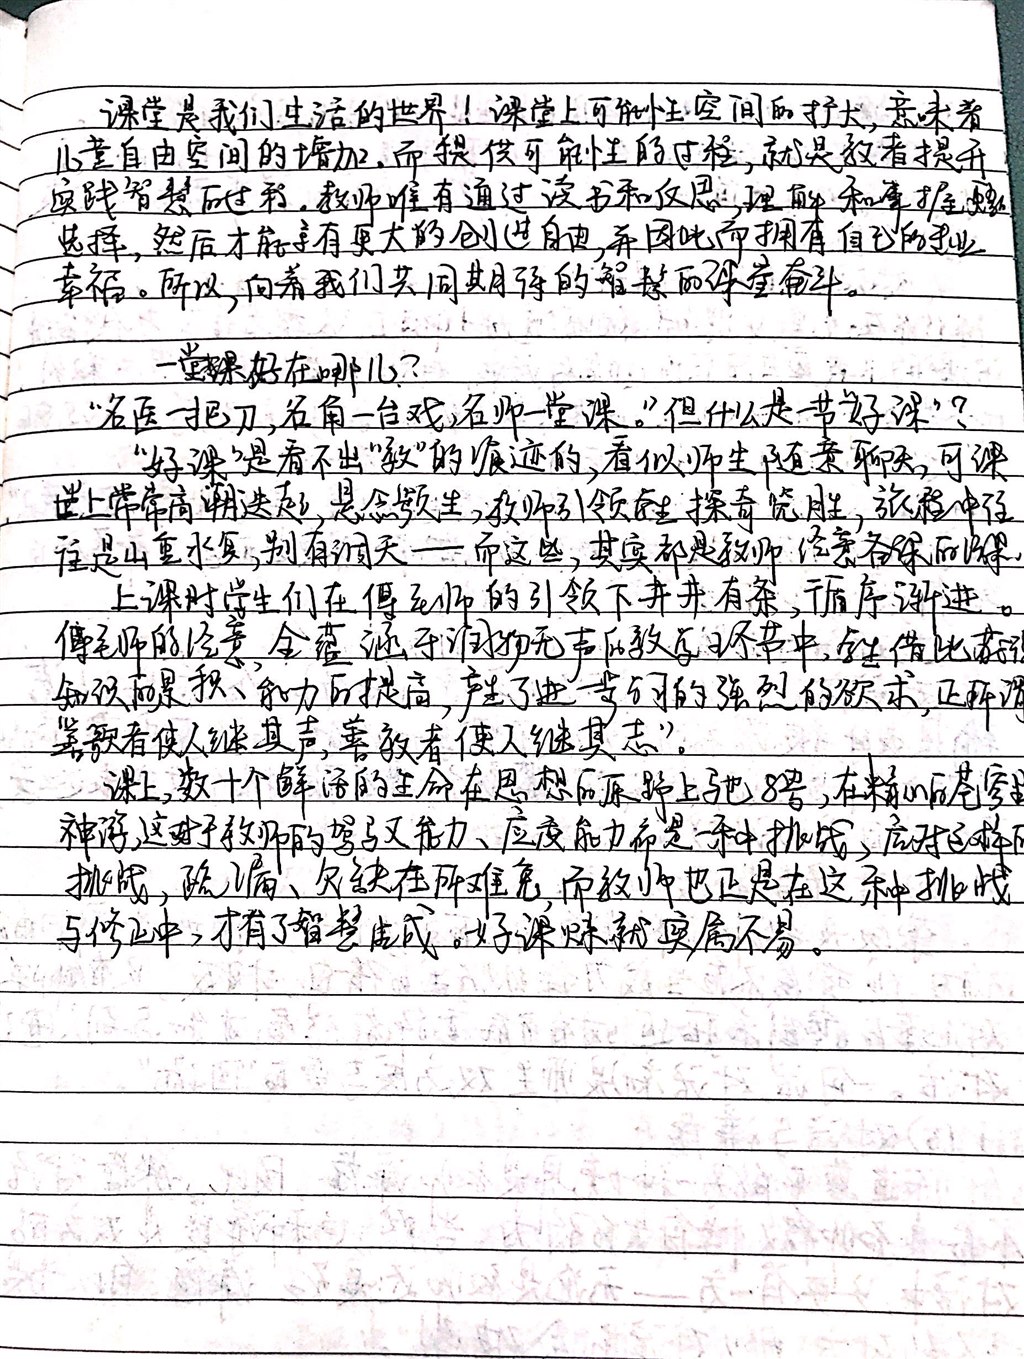 课堂是我们生活的世界！课堂上可能性空间的扩大,意味着
儿童自由空间的增加.而提供可能性的过程,就是教者提升
实践智慧的过程.教师唯有通过读书和反思,理解和掌握
选择,然后才能享有更大的创造自由,并因此而拥有自己的专业
幸福。所以,向着我们共同期待的智慧的课堂奋斗。
一堂课好在哪儿？
“名医一把刀,名角一台戏,名师一堂课。”但什么是一节“好课”？
“好课”是看不出“教”的痕迹的,看似师生随意聊天,可课
堂上常常高潮迭起,悬念频生,教师引领学生探奇览胜,旅程中往
往是山重水复,别有洞天——而这些,其实都是教师经意备课的结果.
上课时学生们在傅老师的引领下井井有条,循序渐进。
傅老师的经意,全蕴涵于润物无声的教学环节中,学生借此获得
知识的累积、能力的提高,产生了进一步学习的强烈的欲求,正所谓
“善歌者使人继其声,善教者使人继其志”。
课上,数十个鲜活的生命在思想的原野上驰骋,在精神的苍穹里
神游,这对于教师的驾驭能力、应变能力而是一种挑战,应对这样的
挑战,疏漏、欠缺在所难免,而教师也正是在这种挑战
与修正中,才有了智慧生成。好课炼就实属不易。